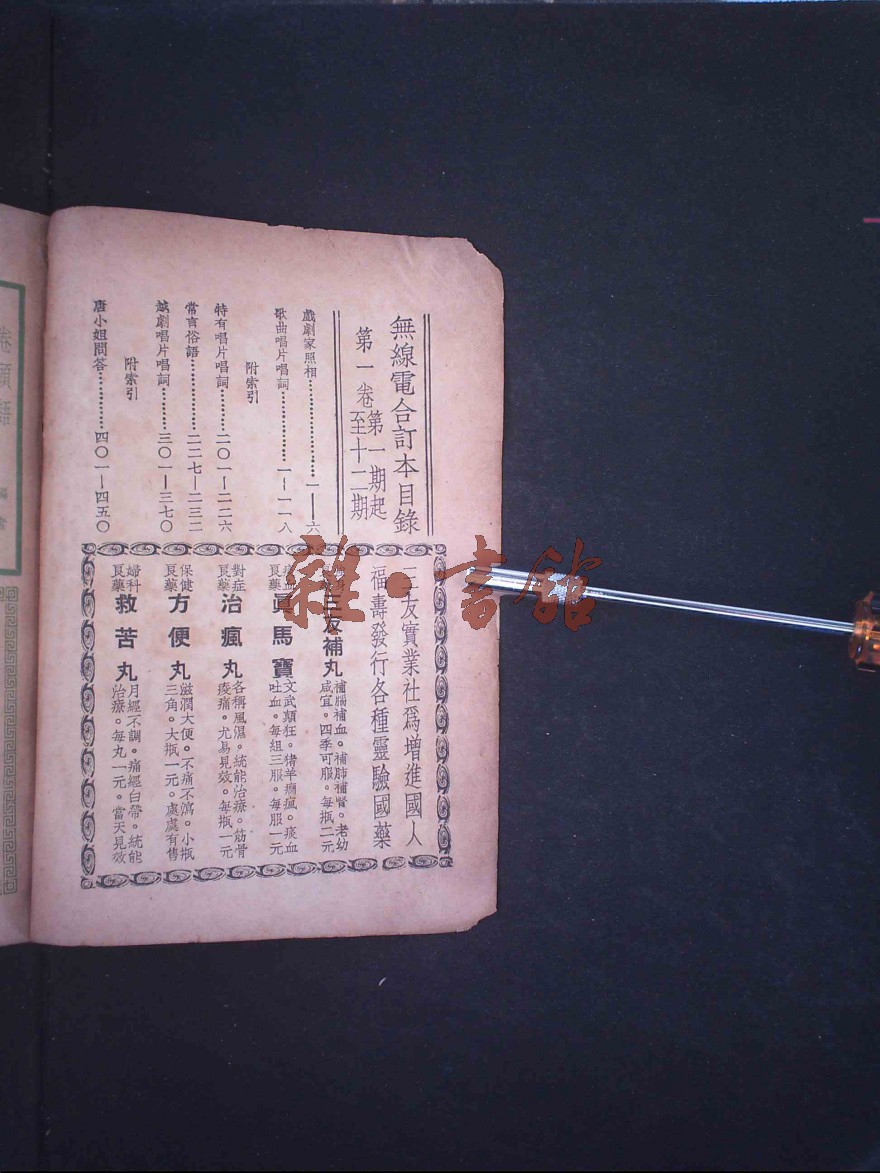 無線電合訂本目錄
第一卷第一期起至十二期
戲劇家照相………………一——六
歌曲唱片唱詞……………一——一一八
附索引
特有唱片唱詞………二〇一——二二六
常言俗語……………二二七——二三二
越劇唱片唱詞………三〇一——三七〇
附索引
唐小姐問答…………四〇一——四五〇
三友實業社為增進國人
福壽發行各種靈驗國藥
三友補丸
補腦補血。補肺補腎。老幼
咸宜。四季可服。每瓶二元
良藥
眞馬寶
文武顛狂。猪羊癎瘋。痰血
吐血。每組三服。每服一元
對症良藥
治瘋丸
各種風濕。統能治療。筋骨
痠痛。尤易見效。每瓶一元
保健良藥
方便丸
滋潤大便。不痛不瀉。小瓶
三角。大瓶一元。處處有售
婦科良藥
救苦丸
月經不調。痛經白帶。統能
治療。每丸一元。當天見效
雜·書館
卷頭語